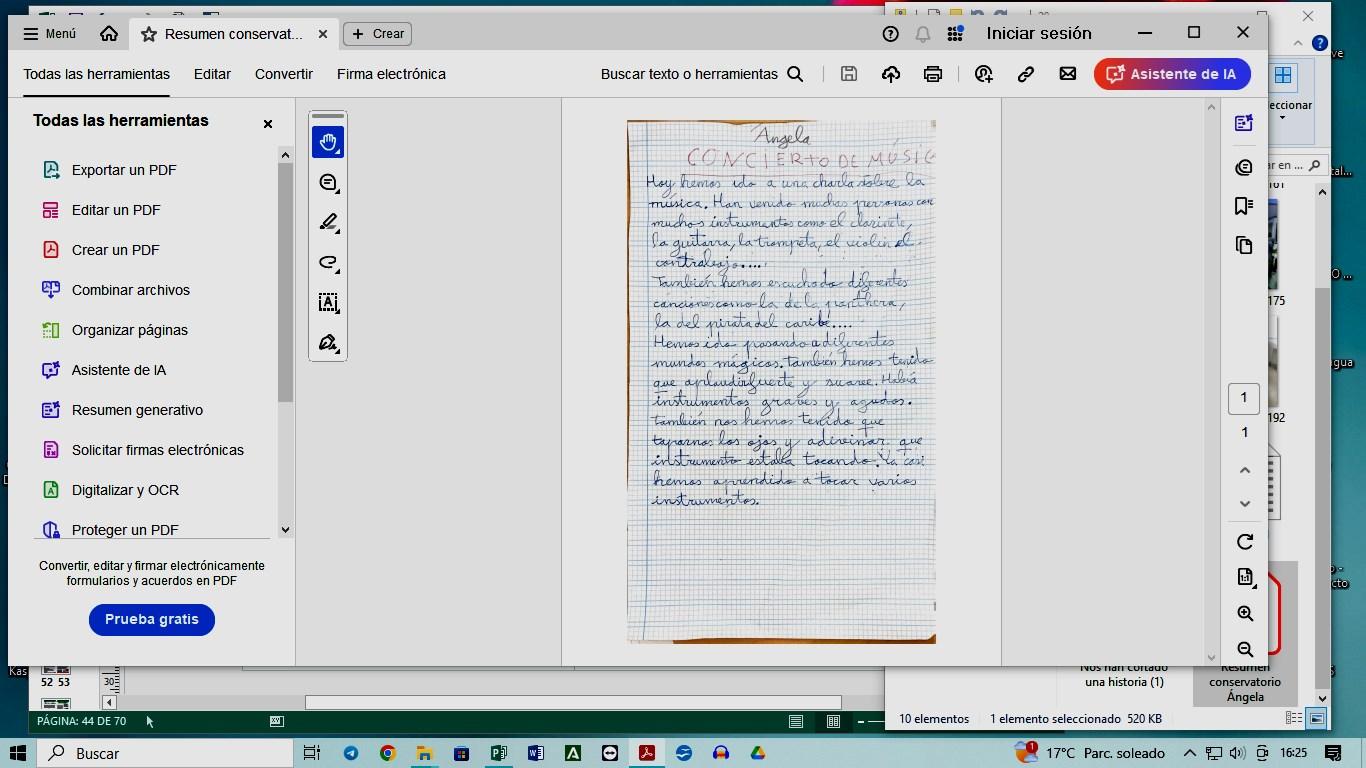 Menú
Resumen conservat...
Crear
Iniciar sesión
Todas las herramientas
Editar
Convertir
Firma electrónica
Buscar texto o herramientas
Asistente de IA
Todas las herramientas
Exportar un PDF
Editar un PDF
Crear un PDF
Combinar archivos
Organizar páginas
Asistente de IA
Resumen generativo
Solicitar firmas electrónicas
Digitalizar y OCR
Proteger un PDF
Convertir, editar y firmar electrónicamente
formularios y acuerdos en PDF
Prueba gratis
Ángela
CONCIERTO DE MÚSIC
Hoy hemos ido a una charla sobre la
música. Han venido muchas personas con
muchos instrumentos como el clarinete,
la guitarra, la trompeta, el violin el
contrabajo.....
También hemos escuchado diferentes
canciones como la de la panthera,
la del pirata del caribe....
Hemos ido pasando a diferentes
mundos mágicos. También hemos tenido
que aplaudir fuerte y suave. Había
instrumentos graves y agudos.
También nos hemos tenido que
taparnos los ojos y adivinar que
instrumento estaba tocando. Ya casi
hemos aprendido a tocar varios
instrumentos.
1
1
eccionar
ar en ...
161
175
192
ve
tal...
O ...
gua
cto
Nos han cortado
una historia (1)
Resumen
conservatorio
Ángela
10 elementos
1 elemento seleccionado 520 KB
Kas
52 53
30
PÁGINA: 44 DE 70
Buscar
17°C Parc. soleado
16:25